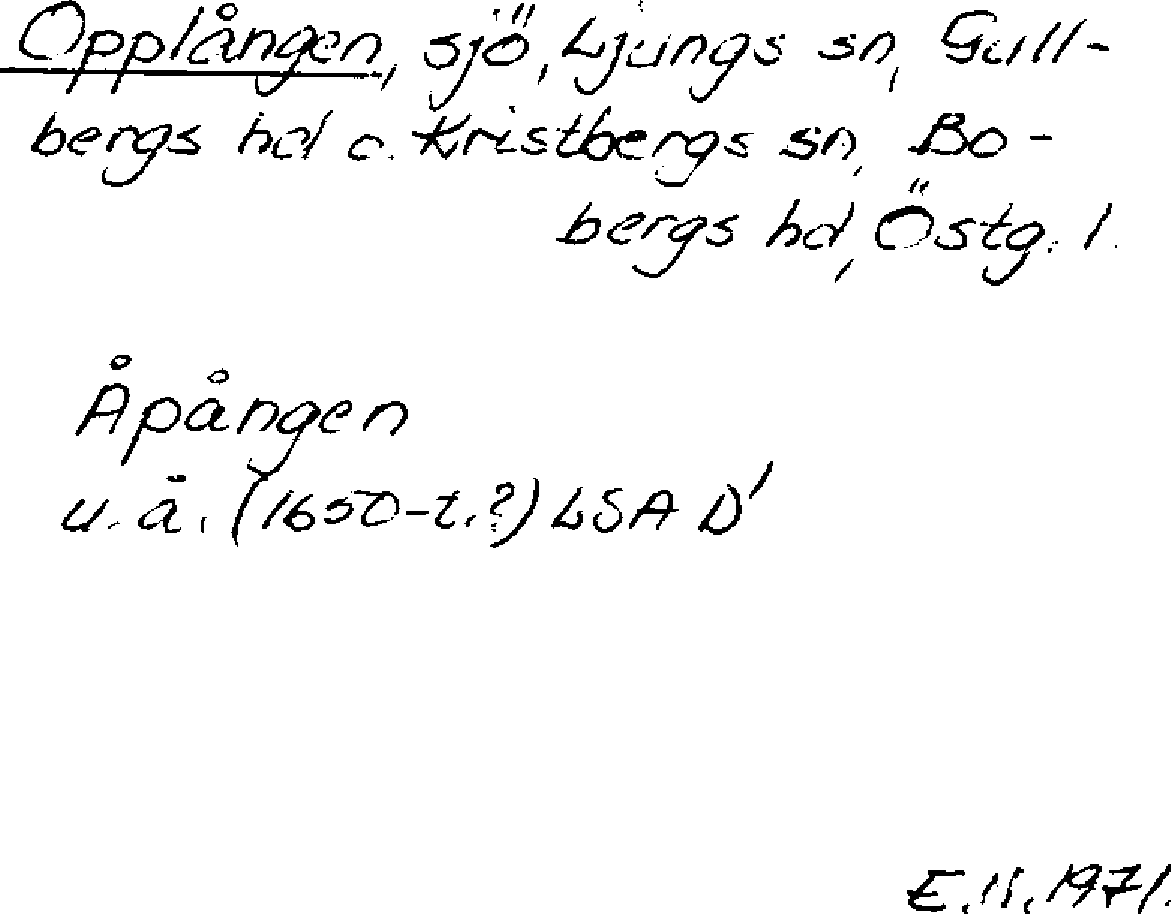 Opplången, sjö, Ljungs sn, Gull-
bergs hd o. Kristbergs sn, Bo-
bergs hd, Östg. l.
Åpången
u.å. (1650-t.?) LSA D'
1971.